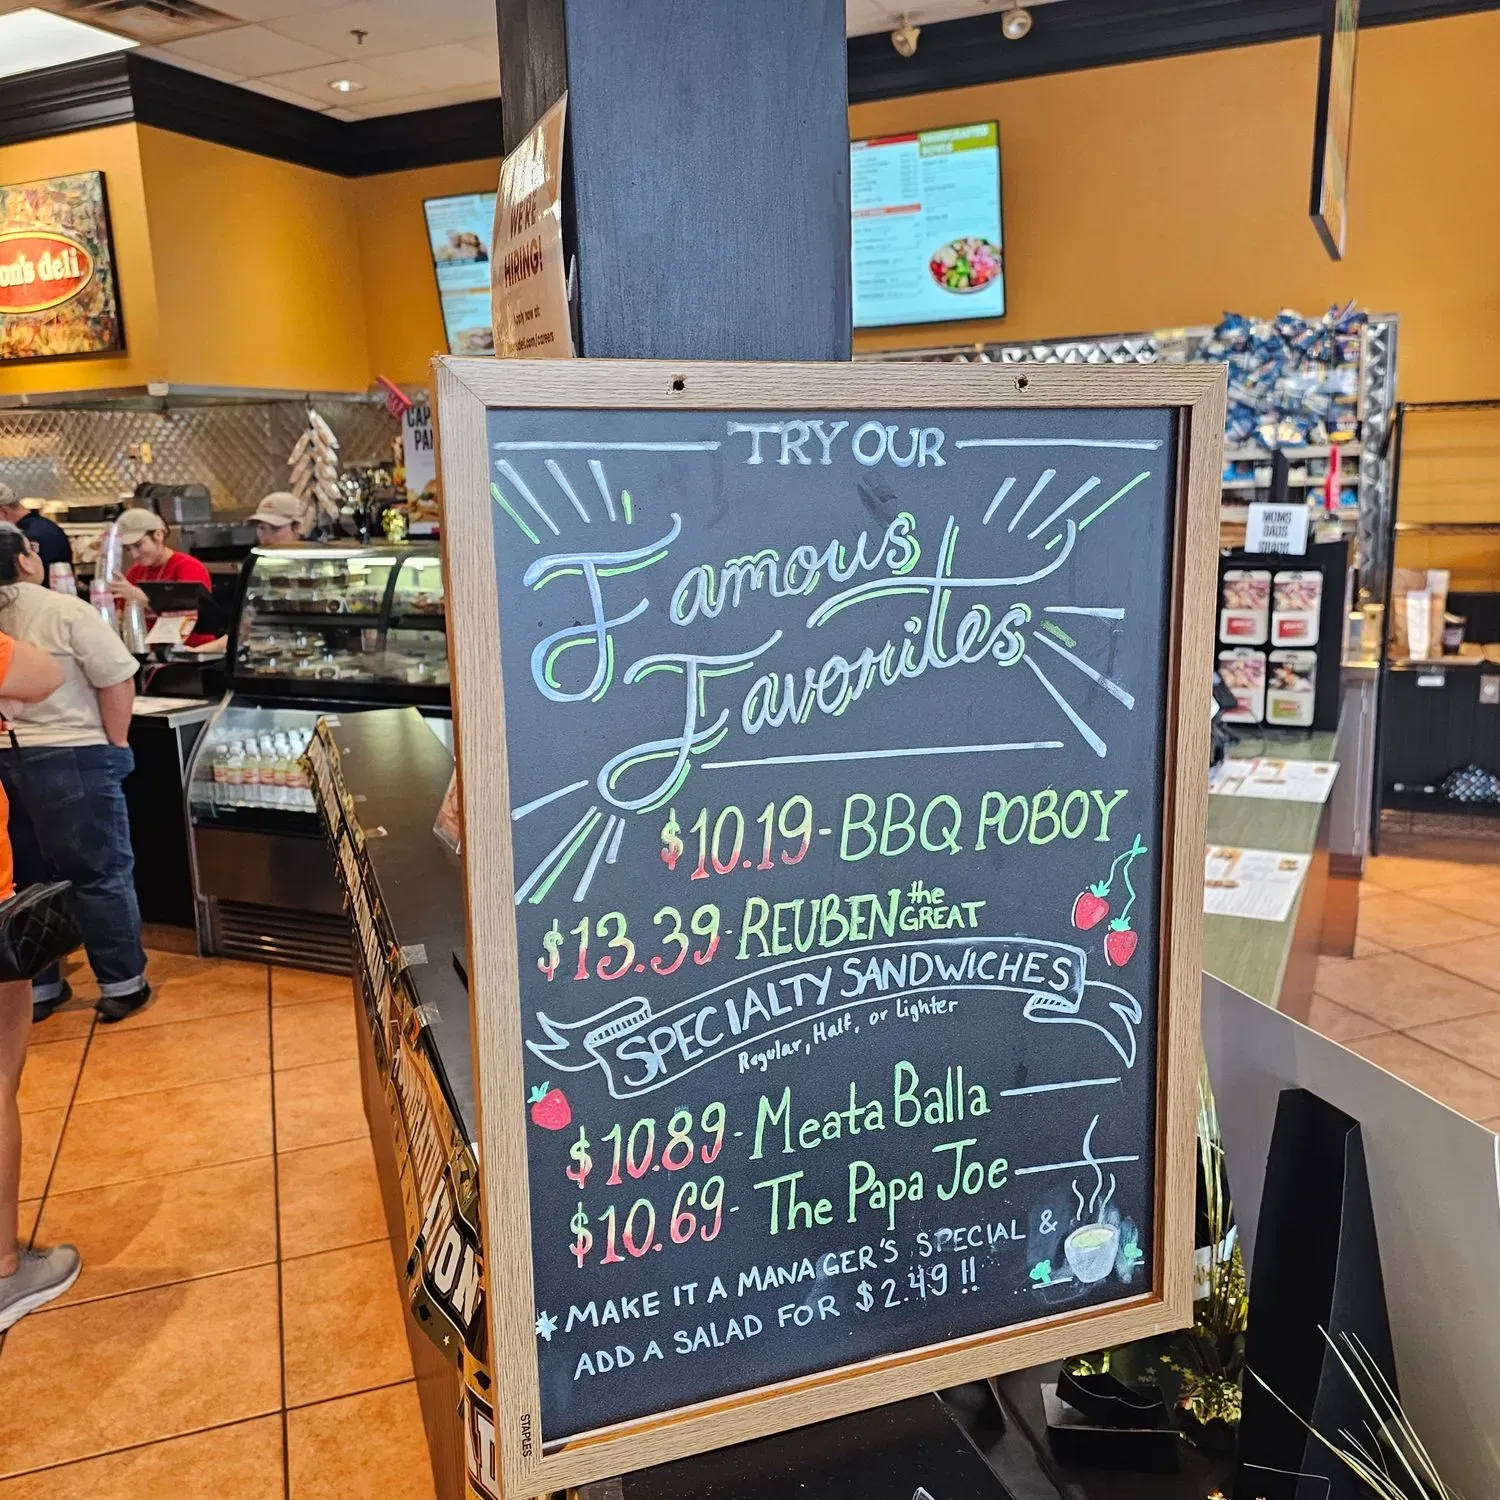 on's deli
WE'RE
HIRING!
Apply now at:
TRY OUR
Famous
Favorites
$10.19-BBQ POBOY
$13.39-REUBEN the GREAT
SPECIALTY SANDWICHES
Regular, Half, or Lighter
$10.89-Meata Balla
$10.69-The Papa Joe
*MAKE IT A MANAGER'S SPECIAL &
ADD A SALAD FOR $2.49!!
STAPLES
MOMS
DADS